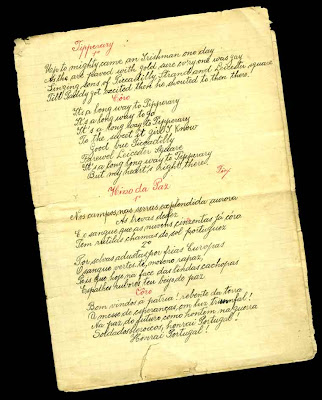 Tipperary
1º
Up to mighty came an Irishman one day
As the are paved with gold, sure ev'ry one was gay
Singing songs of Piccadilly, Strand and Leicester square
Till Paddy got excited then he shouted to them there:
Côro
It's a long way to Tipperary
It's a long way to go
It's a long way to Tipperary
To the sweet st girl I know
Good bye Piccadilly
Farewol Leicester Square
It's a long long way to Tipperary
But my heart's right there!
Fim
Hino da Paz
1º
Nos campos, nas serras explendida aurora
As trevas desfez
E o sangue que as nuvens cinzentas já córa
Tem rutilos chamas de sol portuguez
2º
Por selvas adustas por frias Europas
O sangue vertes-te, moreno rapaz,
Pois que hoje na face das lindas cachopas
Espalhes rubores teu beijo de paz
Côro
Bem vindos á patria! rebento da terra
O messe de esperanças, em luz triumfal!
Na paz do futuro, como hontem na guerra
Soldados heroicos, honrai Portugal!
Honrai Portugal!